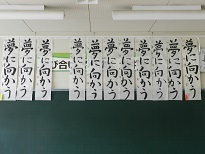 夢に向かう
夢に向かう
夢に向かう
夢に向かう
夢に向かう
夢に向かう
夢に向かう
夢に向かう
夢に向かう
夢に向かう
び合